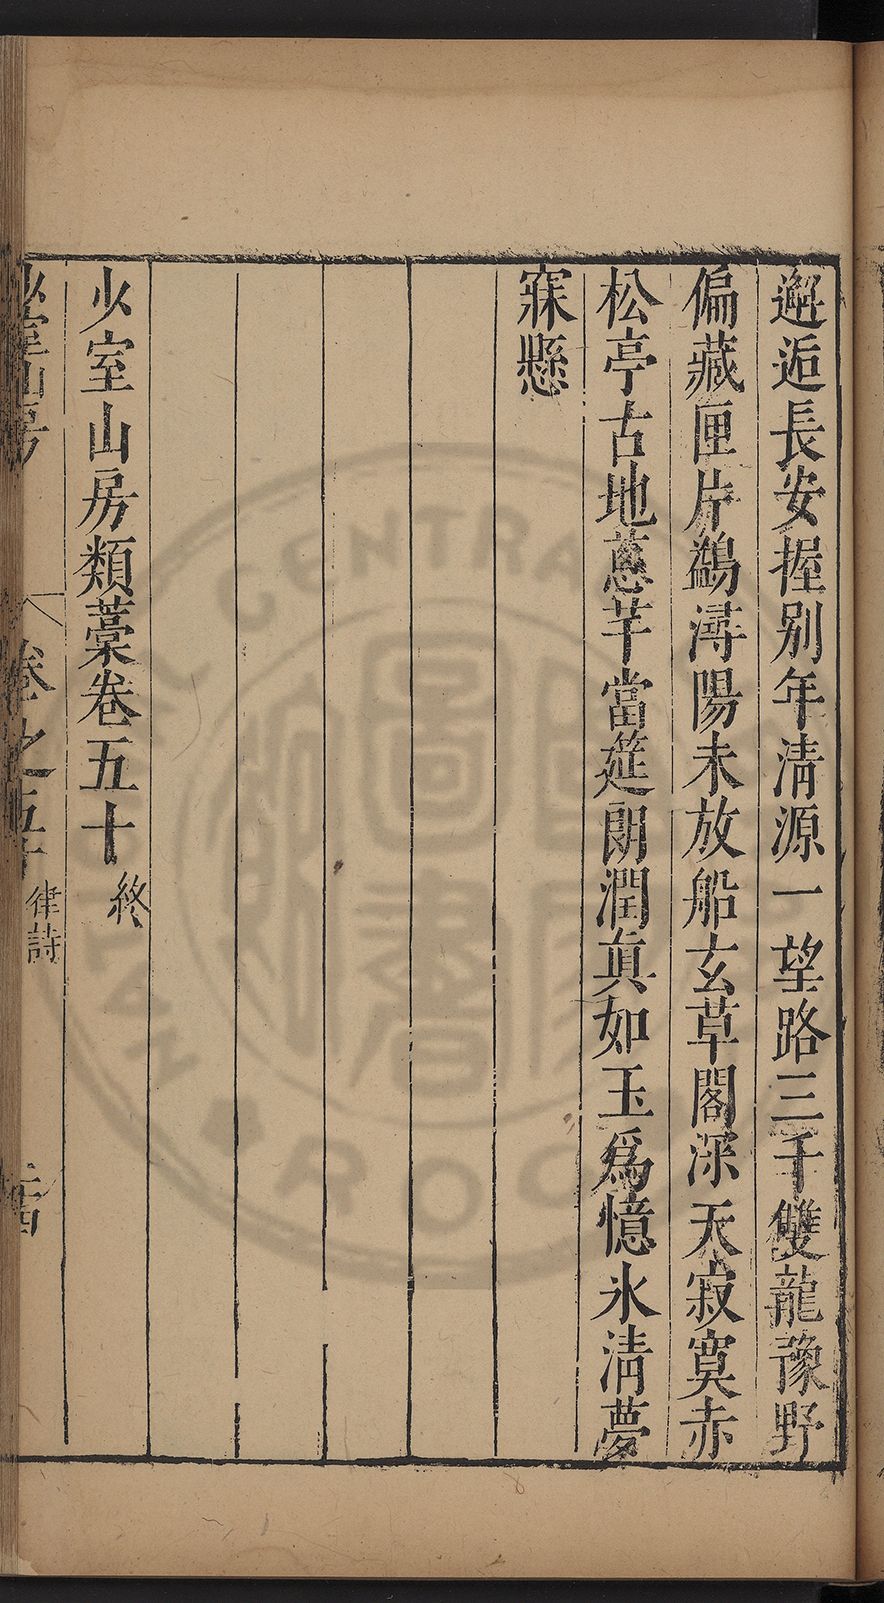 邂逅長安握别年淸源一望路三千雙龍豫野
偏藏匣片鷁潯陽未放船玄草閣深天寂寞赤
松亭古地蔥芊當筵朗潤眞如玉爲憶氷淸夢
寐懸
少室山房類藁卷五十終
少室山房 卷之五十 律詩